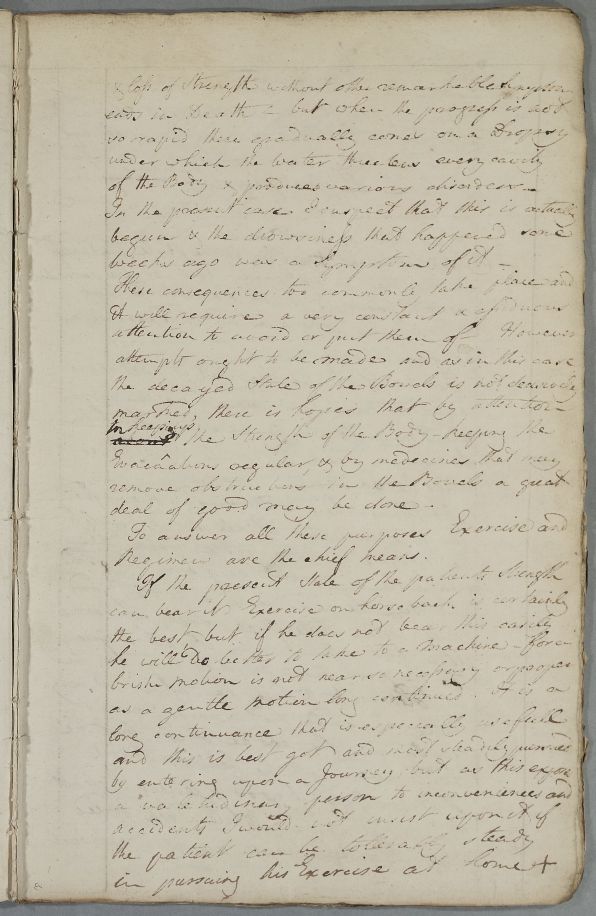 & loss of Strength without other remarkable Symptom
ends in Death – but when the progress is not
so rapid there gradually comes on a Dropsy
under which the water threatens every cavity
of the Body & produces various disorders –
In the present case I suspect that this is actually
begun & the drowsiness that happened some
weeks ago was a Symptom of it –
These consequences too commonly take place and
it will require a very constant & assiduous
attention to avoid or put them off However
attempts ought to be made and as in this case
the decayed State of the Bowels is not decisively
marked, there is hopes that by attention
to keeping
the Strength of the Body – keeping the
Evacuations regular, & by medecines that may
remove obstructions in the Bowels a great
deal of good may be done –
To answer all these purposes Exercise and
Regimen are the chief means.
If the present State of the patients Strength
can bear it Exercise on horseback is certainly
the best, but if he does not bear this easily
he will do better to take to a Machine –
brisk motion is not near so necessary or proper
as a gentle motion long continued. It is a
long continuance that is especially usefull
and this is best got and most steadily pursued
by entering upon a Journey – but as this expose
a valetudinary person to inconveniences and
accidents I would not insist upon it if
the patient can be tolerably steady
in pursuing his Exercise at home +